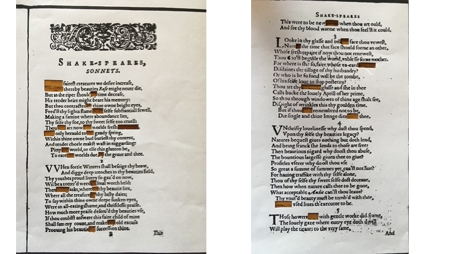 SHAKE-SPEARES,
SONNETS.
fairest creatures we desire increase,
thereby beauties Rose might neuer die,
But as the riper should time decease,
His tender heire might beare his memory:
But thou contracted thine owne bright eyes,
Feed'st thy lights flame selfe substantiall fewell,
Making a famine where aboundance lies,
Thy selfe thy foe, to thy sweet selfe too cruell:
Thou art now worlds fresh
only herauld to gaudy spring,
Within thine owne bud buriest thy content,
And tender chorle makst wast in niggarding:
Pitty world, or else this glutton be,
To eate worlds due, by the graue and thee.
2
VVHen fortie Winters shall beseige thy brow,
And digge deep trenches in thy beauties field,
Thy youthes proud liuery so gaz'd on now,
Wil be a totter'd weed of smal worth held:
Then beautie lies,
Where all the treasure of thy lusty daies;
To say within thine owne deepe sunken eyes,
Were an all-eating shame, and thriftlesse praise.
How much more praise deseru'd thy beauties vse,
If thou couldst answere this faire child of mine
Shall sum my count, and make my old excuse
Proouing his beautie succession thine.
B
This
SHAKE-SPEARES
This were to be new when thou art ould,
And see thy blood warme when thou feel'st it could.
3
LOoke in thy glasse and face thou vewest,
Now the time that face should forme an other,
Whose fresh repaire if now thou not renewest,
Thou do'st beguile the world, vnblesse some mother.
For where is she so faire whose vn-eard
Disdaines the tillage of thy husbandry?
Or who is he so fond will be the tombe,
Of his selfe loue to stop posterity?
Thou art thy glasse and she in thee
Calls backe the louely Aprill of her prime,
So thou through windowes of thine age shalt see,
Dispight of wrinkles this thy goulden time.
But if thou remembred not to be,
Die single and thine Image dies
4
VNthrifty louelinesse why dost thou spend,
Vpon thy selfe thy beauties legacy?
Natures bequest giues nothing but doth lend,
And being franck she lends to those are free:
Then beautious nigard why doost thou abuse,
The bountious largesse giuen thee to giue?
Profitles vserer why doost thou vse
So great a summe of summes yet can'st not liue?
For hauing traffike with thy selfe alone,
Thou of thy selfe thy sweet selfe dost deceaue,
Then how when nature calls thee to be gone,
What acceptable Audit can'st thou leaue?
Thy vnus'd beauty must be tomb'd with thee,
vsed liues th'executor to be.
5
THose howers with gentle worke did frame,
The louely gaze where euery eye doth dwell
Will play the tirants to the very same,
And